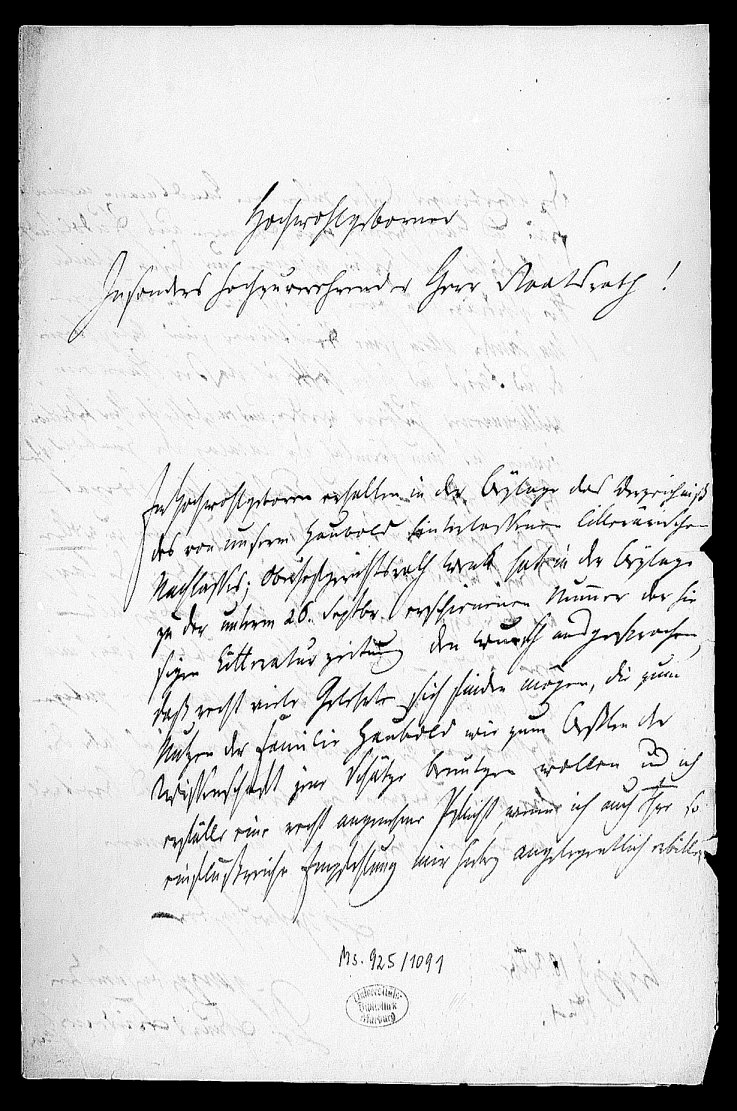 Hochwohlgeborner
Insonders hochzuverehrender Herr Staatsrath!
Ew Hochwohlgeboren erhalten in der Beylage das Verzeichniß
des von unserm Haubold hinterlassenen litterärischen
Nachlasses; Oberhofgerichtsrath hat in der Beylage
zu der unterm 26. Septbr. erschienenen Nummer der hie
sigen Litteraturzeitung den Wunsch ausgesprochen,
daß recht viele Gelehrte sich finden mögen, die zum
Nutzen der Familie Haubold wie zum Besten der
Wissenschaft jene Schätze benutzen wollen und ich
erfülle eine recht angenehme Pflicht, wenn ich auch Ihre so
einflußreiche Empfehlung mir sehr angelegentlich erbitte
Ms. 925/1091
Universitäts
Bibliothek
Marburg